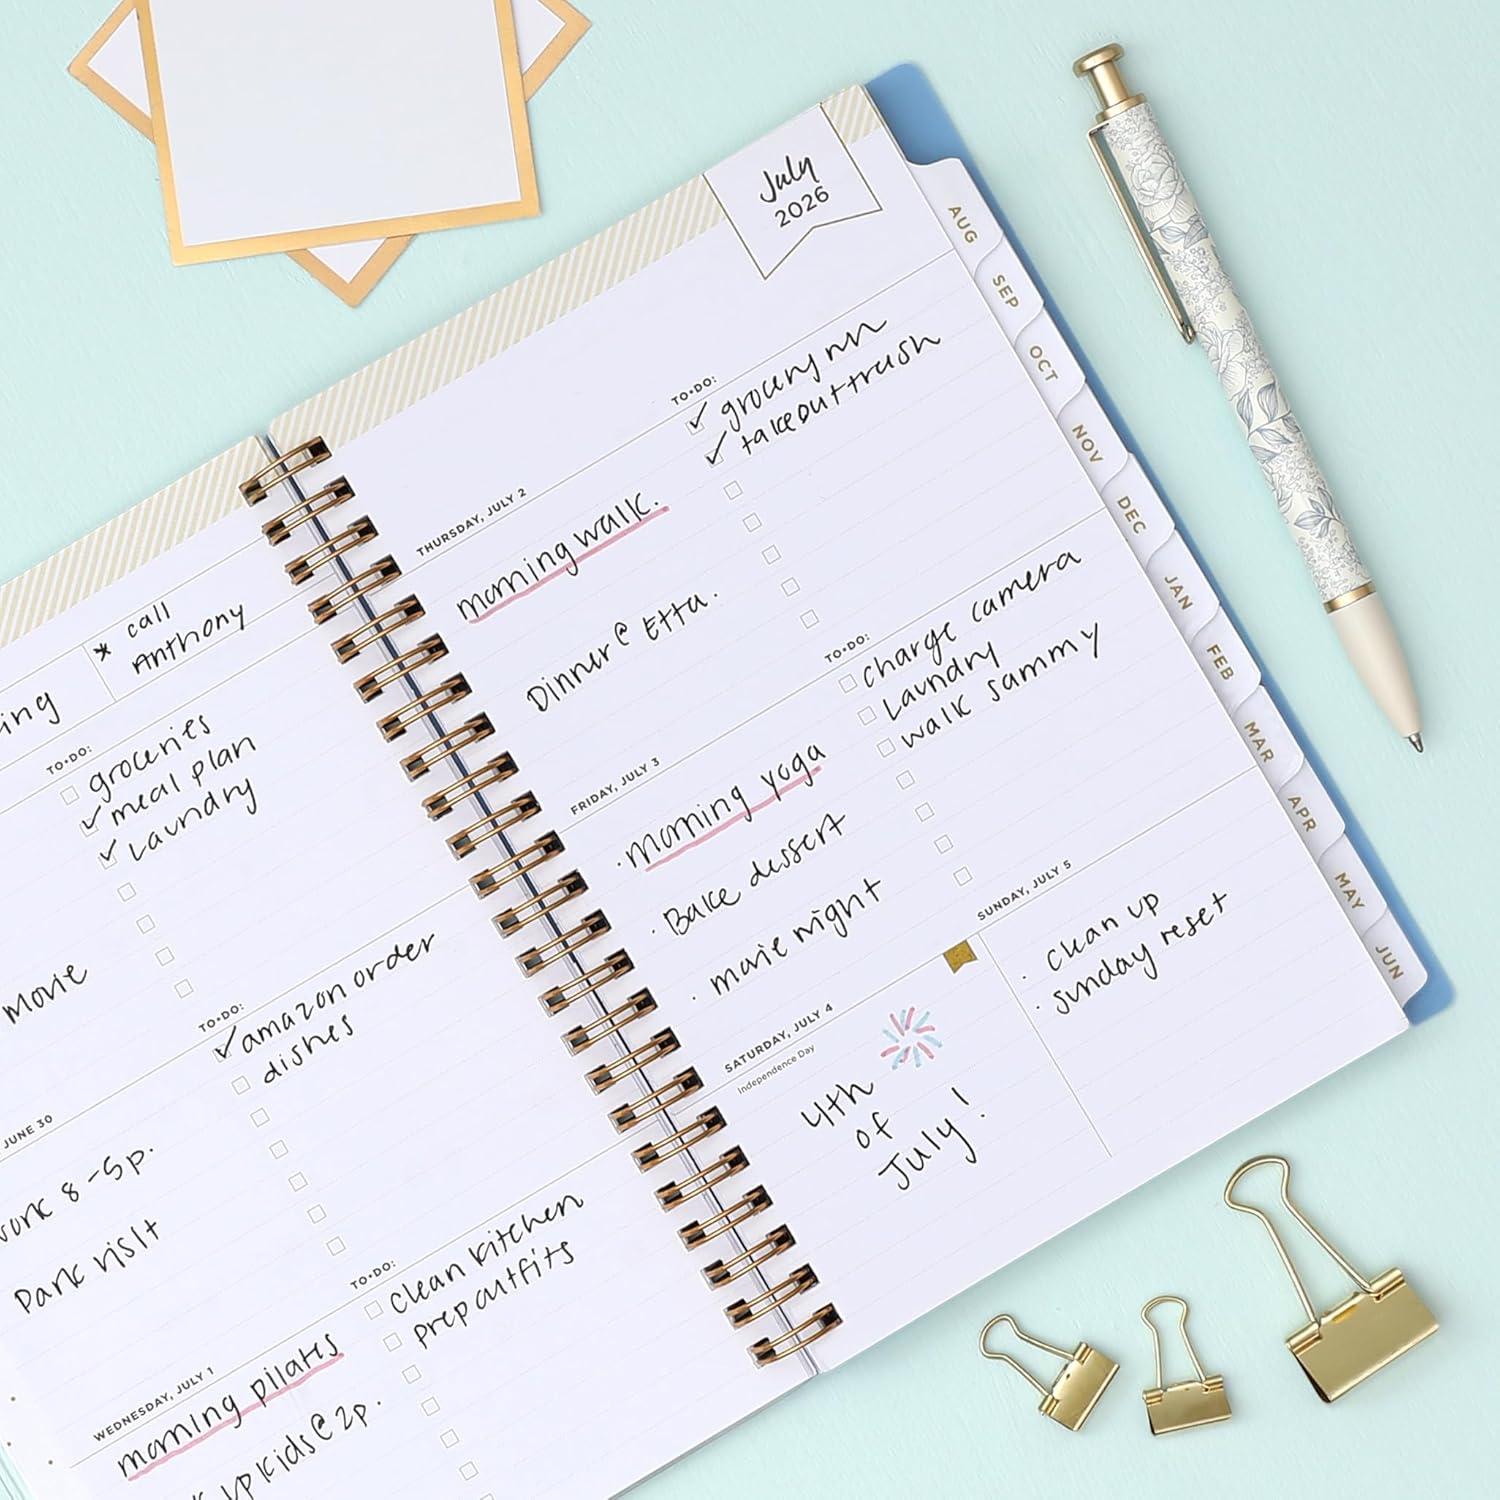 * call
Anthony
ing
TO•DO:
groceries
meal plan
Laundry
Movie
JUNE 30
TO•DO:
amazon order
dishes
work 8-5p.
Park visit
WEDNESDAY, JULY 1
TO•DO:
clean kitchen
prep outfits
morning pilates
up kids @ 2p.
July
2026
THURSDAY, JULY 2
TO•DO:
grocery run
take out trash
morning walk.
Dinner @ Etta.
FRIDAY, JULY 3
TO•DO:
charge camera
Laundry
walk sammy
· morning yoga
· Bake dessert
· movie night
SATURDAY, JULY 4
Independence Day
4th
of
July!
SUNDAY, JULY 5
· clean up
· sunday reset
AUG
SEP
OCT
NOV
DEC
JAN
FEB
MAR
APR
MAY
JUN